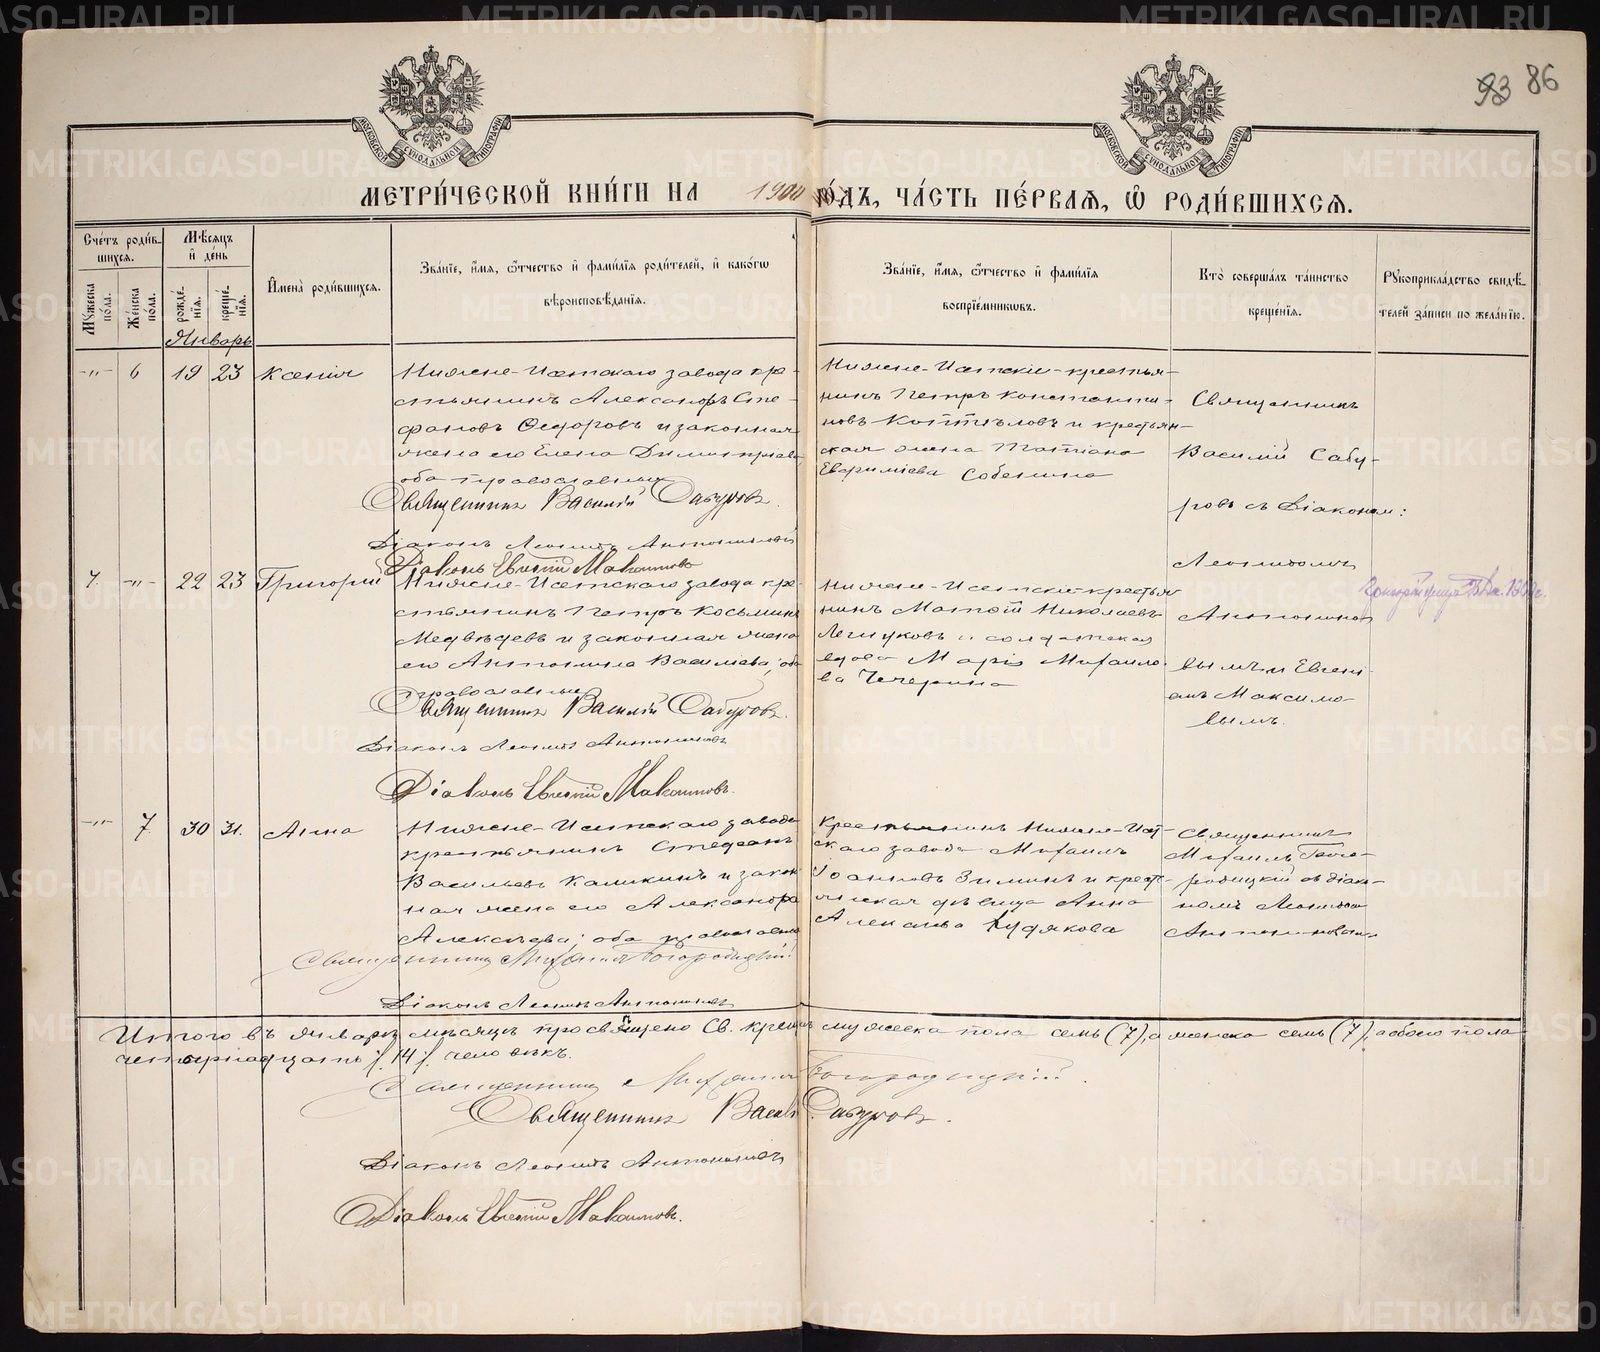 93 86
МОСКОВСКОЙ СѴНОДАЛЬНОЙ ТИПОГРАФІИ
МОСКОВСКОЙ СѴНОДАЛЬНОЙ ТИПОГРАФІИ
МЕТРИ́ЧЕСКОЙ КНИ́ГИ НА 1900 ГО́ДЪ, ЧА́СТЬ ПЕ́РВАѦ, Ѽ РОДИ́ВШИХСѦ.
Сче́тъ роди́в-
шихсѧ.
Мꙋ́жеска по́ла.
Же́нска по́ла.
Мѣ́сѧцъ и҆ де́нь
рожде́-нїѧ.
креще́-нїѧ.
Январь
И҆мена̀ роди́вшихсѧ.
Зва́нїе, и҆́мѧ, ѻ҆́тчество и҆ фами́лїѧ роди́телей, и҆ како́гѡ
вѣроисповѣ́данїѧ.
Зва́нїе, и҆́мѧ, ѻ҆́тчество и҆ фами́лїѧ
воспрїе́мникѡвъ.
Кто̀ соверша́лъ та́инство
креще́нїѧ.
Рꙋкоприкла́дство свидѣ́-
телей за́писи по жела́нїю.
-"- 6 19 23 Ксенія
Нижне-Исетскаго завода кре-
стьянинъ Александръ Сте-
фановъ Ѳедоровъ и законная
жена его Елена Димитріева
оба православные
Священникъ Василій Сабуровъ.
Діаконъ Леонидъ Антониновъ
Діаконъ Евгеній Максимовъ
Нижне-Исетскіе-крестья-
нинъ Петръ Константи-
новъ и крестьян-
ская жена Татіана
Евфиміева Собенина
Священникъ
Василій Сабу-
ровъ съ Діакономъ:
Леонидомъ
Антонино-
вымъ и Евгені-
емъ Максимо-
вымъ.
7. -"- 22 23 Григорій
Нижне-Исетскаго завода кре-
стьянинъ Петръ Косьминъ
Медвѣдевъ и законная жена
его Антонина Васильева; оба
православные
Священникъ Василій Сабуровъ.
Діаконъ Леонидъ Антониновъ
Діаконъ Евгеній Максимовъ.
Нижне-Исетскіе: крестья-
нинъ Матѳій Николаевъ
и солдатская
вдова Марія Михаило-
ва Чечерина
-"- 7 30 31. Анна
Нижне-Исетскаго завода
крестьянинъ Стефанъ
Васильевъ Каликинъ и закон-
ная жена его Александра
Алексѣева; оба православные
Священникъ Михаилъ Богородицкій
Діаконъ Леонидъ Антониновъ
Крестьянинъ Нижне-Исет-
скаго завода Михаилъ
Іоанновъ Зиминъ и кресть-
янская дѣвица Анна
Алексѣева Худякова
Священникъ
Михаилъ Бого-
родицкій съ діако-
номъ Леонидомъ
Антониновымъ
Итого въ январѣ мѣсяцѣ просвѣщено Св. крещ. мужеска пола семь (7), а женска семь (7), а обоего пола
четырнадцать /. 14 /. человѣкъ.
Священникъ Михаилъ Богородицкій.
Священникъ Василій Сабуровъ.
Діаконъ Леонидъ Антониновъ
Діаконъ Евгеній Максимовъ.
METRIKI.GASO-URAL.RU